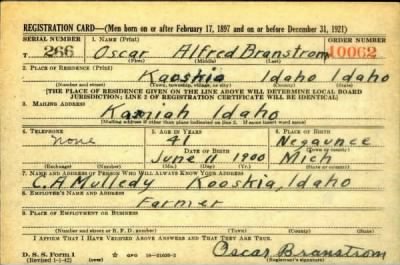 REGISTRATION CARD—(Men born on or after February 17, 1897 and on or before December 31, 1921)
SERIAL NUMBER 1. NAME (Print) ORDER NUMBER
T 266 Oscar Alfred Branstrom 10062
(First) (Middle) (Last)
2. PLACE OF RESIDENCE (Print)
Kooskia Idaho Idaho
(Number and street) (Town, township, village, or city) (County) (State)
[THE PLACE OF RESIDENCE GIVEN ON THE LINE ABOVE WILL DETERMINE LOCAL BOARD
JURISDICTION; LINE 2 OF REGISTRATION CERTIFICATE WILL BE IDENTICAL]
3. MAILING ADDRESS
Kamiah Idaho
[Mailing address if other than place indicated on line 2. If same insert word same]
4. TELEPHONE 5. AGE IN YEARS 6. PLACE OF BIRTH
none 41 Negaunce
DATE OF BIRTH (Town or county)
June 11 1900 Mich
(Exchange) (Number) (Mo.) (Day) (Yr.) (State or country)
7. NAME AND ADDRESS OF PERSON WHO WILL ALWAYS KNOW YOUR ADDRESS
C. A Mulledy Kooskia, Idaho
8. EMPLOYER'S NAME AND ADDRESS
Farmer
9. PLACE OF EMPLOYMENT OR BUSINESS
(Number and street or R. F. D. number) (Town) (County) (State)
I AFFIRM THAT I HAVE VERIFIED ABOVE ANSWERS AND THAT THEY ARE TRUE.
D. S. S. Form 1 GPO Oscar Branstrom
(Revised 1-1-42) (Registrant's signature)